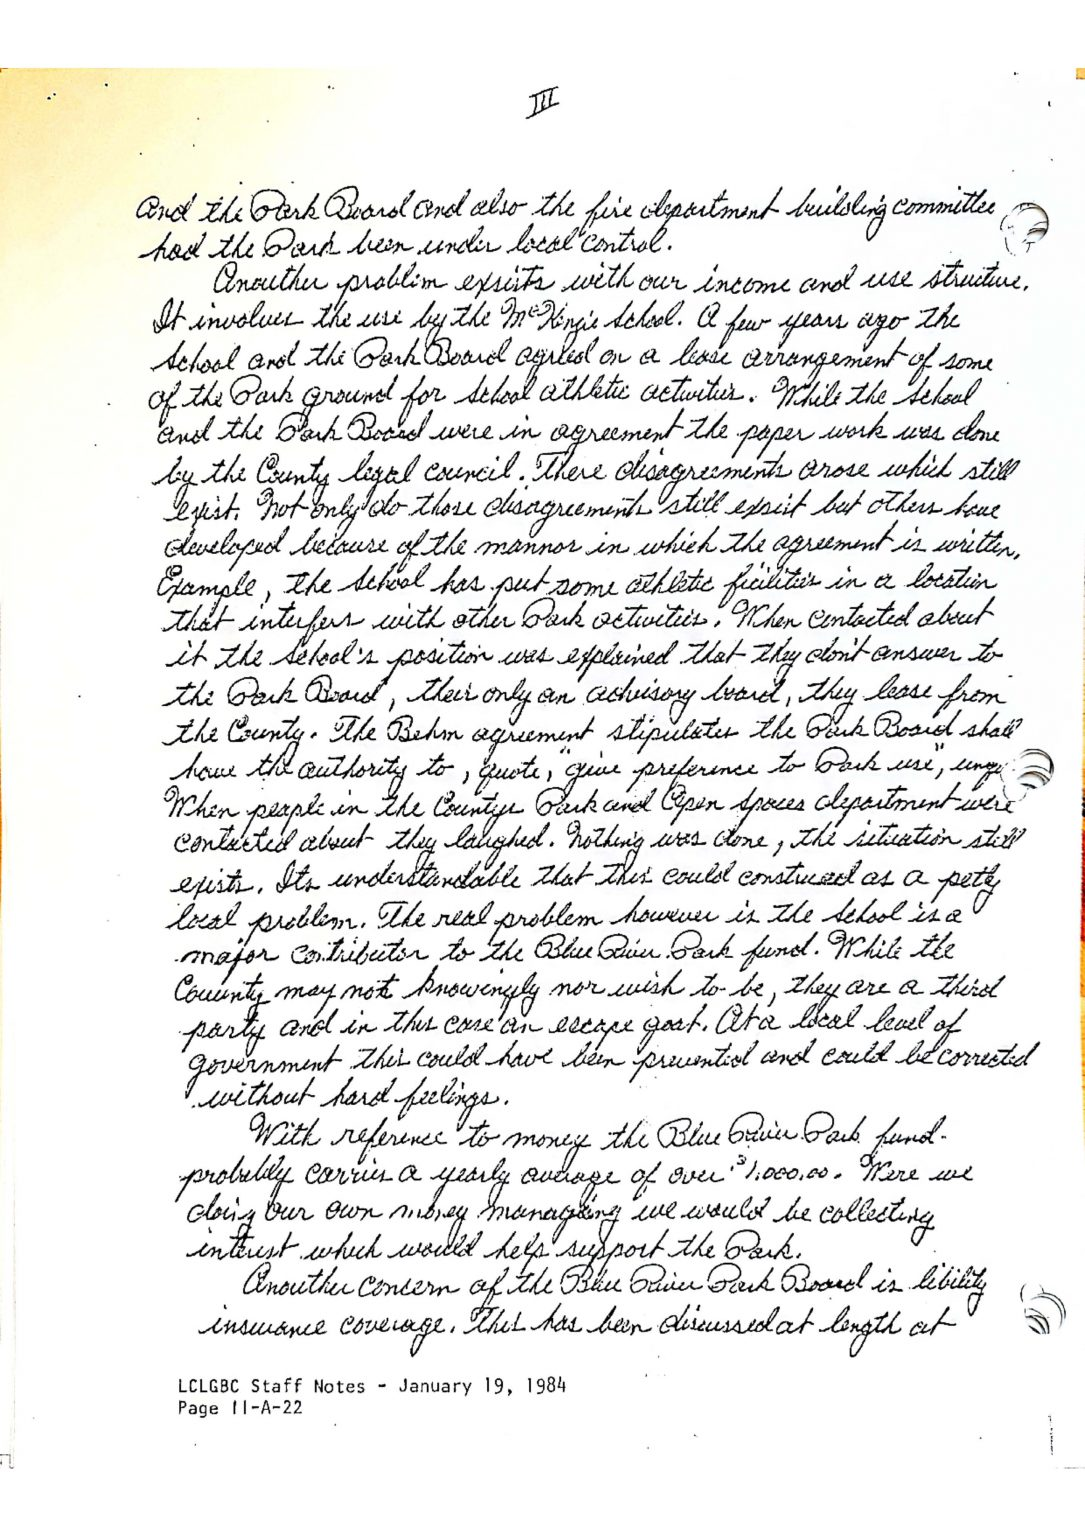 III
and the Park Board and also the fire department building committee
had the Park been under local control.
Anouther problem exsists with our income and use structure.
It involves the use by the McKinzie School. A few years ago the
School and the Park Board agreed on a lease arrangement of some
of the Park ground for School athletic activities. While the School
and the Park Board were in agreement the paper work was done
by the County legal council. There disagreements arose which still
exist. Not only do those disagreements still exsist but others have
developed because of the mannor in which the agreement is written.
Example, the School has put some athletic facilities in a location
that interfers with other Park activities. When contacted about
it the School's position was explained that they don't answer to
the Park Board, their only an advisory board, they lease from
the County. The Behm agreement stipulates the Park Board shall
have the authority to, quote, "give preference to Park use",
When people in the Countys Park and Open Spaces department were
contacted about they laughed. Nothing was done, the situation still
exists. Its understandable that this could construed as a petty
local problem. The real problem however is the School is a
major contributor to the Blue River Park fund. While the
Couunty may not knowingly nor wish to be, they are a third
party and in this case an escape goat. At a local level of
government this could have been prevented and could be corrected
without hard feelings.
With reference to money the Blue River Park fund
probably carries a yearly average of over $1,000.00. Were we
doing our own money managing we would be collecting
interest which would help support the Park.
Anouther concern of the Blue River Park Board is libility
insurance coverage. This has been discussed at length at
LCLGBC Staff Notes - January 19, 1984
Page II-A-22